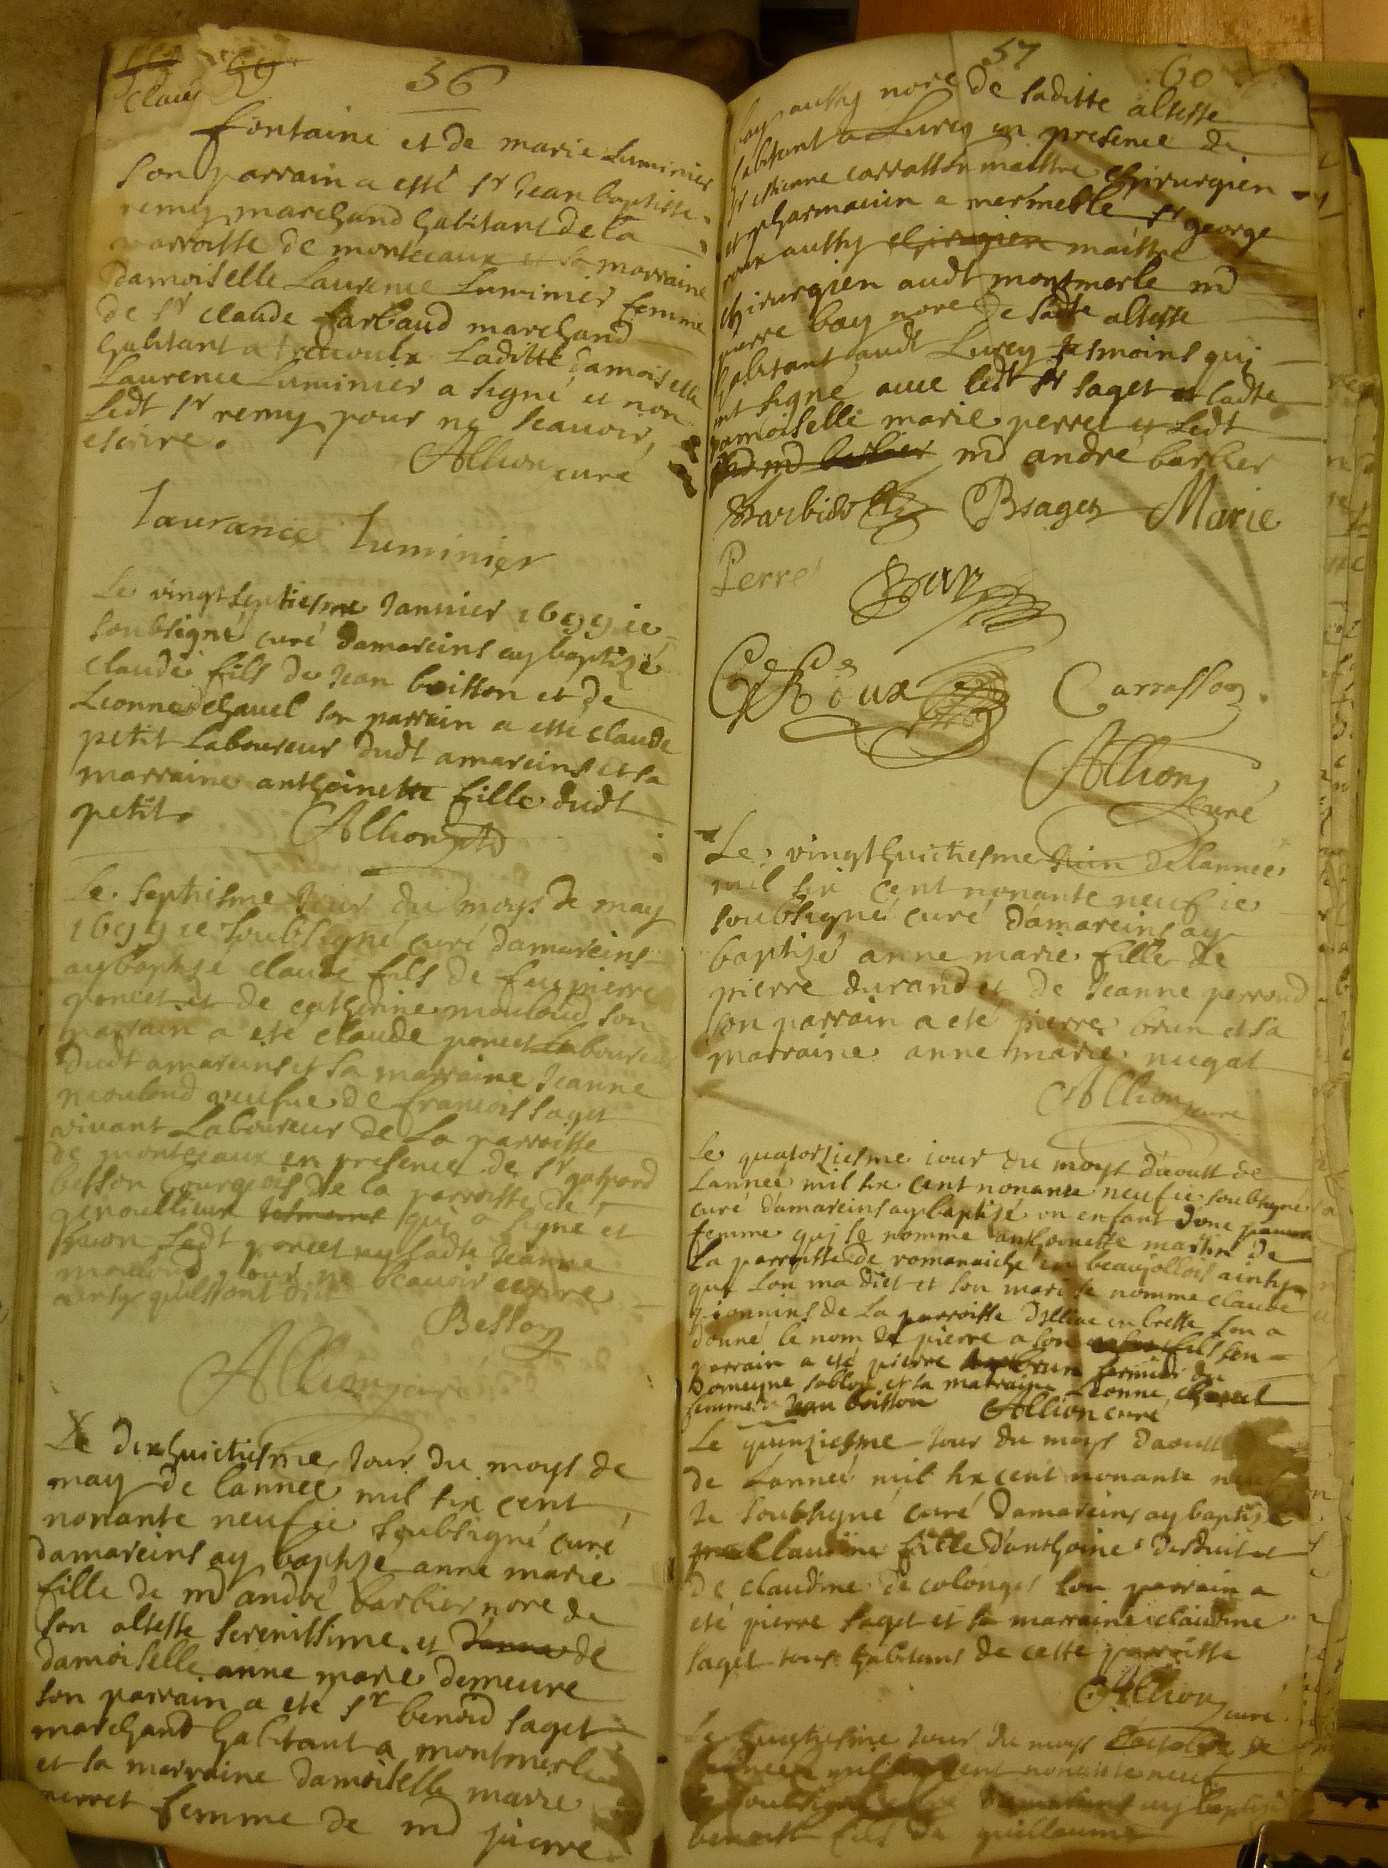 59
36
Claud
fontaine et de marie Luminier
son parrain a esté sr Jean baptiste
remy marchand habitant de la
parroisse de monteaux et sa marraine
damoiselle Laurence Luminier femme
de sr claude farbaud marchand
habitant a Laditte damoiselle
Laurence Luminier a signé et non
ledt sr remy pour ne scauoir
escrire.
Allion curé
laurance luminier
Le vingt septiesme Januier 1699 ie
soubsigné curé damareins ay baptizé
claude fils de Jean boisson et de
Leonne chauel son parrain a esté claude
petit Laboureur dudt amareins et sa
marraine anthoinette fille dudt
petit.
Allion
Le septiesme Jour du moys de may
1699 ie soubsigné curé damareins
ay baptizé claude fils de feu pierre
poncet et de catherine mouloud son
parrain a eté claude poncet Laboureur
dudt amareins et sa marraine Jeanne
mouloud veufue de francois saget
viuant Laboureur de La parroisse
de monteaux en presence de sr gaspard
besson bourgeois de la parroisse de
genoullieux qui a signé et
non ledt poncet ny ladte Jeanne
mouloud pour ne scauoir escrire
Besson
Allion curé
Le dixhuictiesme Jour du moys de
may de lannee mil six cent
nonante neuf ie soubsigné curé
damareins ay baptizé anne marie
fille de md andré barbier nore de
son altesse serenissime et de
damoiselle anne marie demeure
son parrain a eté sr benoid saget
marchand habitant a montmerle
et sa marraine damoiselle marie
perret femme de md pierre
57
60
bay aussy nore de saditte altesse
habitant a Lurcy en presence de
sr estienne carrasson maistre chirurgien
et pharmacien a mermerle sr george
roux aussy chirurgien maistre
chirurgien audt montmerle md
pierre bay nore de sadte altesse
habitant audt Lurcy tesmoins qui
ont signé auec ledt sr saget et ladte
damoiselle marie perret et ledt
md barbier md andré barbier
Barbier Bsaget Marie
Perret Bay
G Roux Carrasson
Allion
curé
Le vingthuictiesme Juin de lannee
mil six cent nonante neuf ie
soubsigné curé damareins ay
baptizé anne marie fille de
pierre durand et de Jeanne perroud
son parrain a eté pierre brun et sa
marraine anne marie nugat
Allion curé
Le quatorziesme iour du moys daoust de
Lannee mil six cent nonante neuf ie soubsigné
curé damareins ay baptizé un enfant dune pauure
femme qui se nomme anthoinette martin de
la parroisse de romanaiche en beaujollois ainsy
que lon ma dict et son mari se nomme claude
de La parroisse en bresse lon a
donné le nom de pierre a son fils son
parrain a eté pierre brun fermier du
domeyne sablon et sa marraine Leonne chauel
femme de Jean boisson Allion curé
Le quinziesme Jour du moys daoust
de Lanneé mil six cent nonante neuf
Ie soubsigné curé damareins ay baptizé
Claudine fille danthoine et
de claudine de colonges son parrain a
eté pierre saget et sa marraine claudine
saget tous habitans de cette parroisse
Allion curé
Le huictiesme Jour du moys de
Lanneé mil six cent nonante neuf
ie soubsigné curé damareins ay baptizé
benoist fils de guillaume